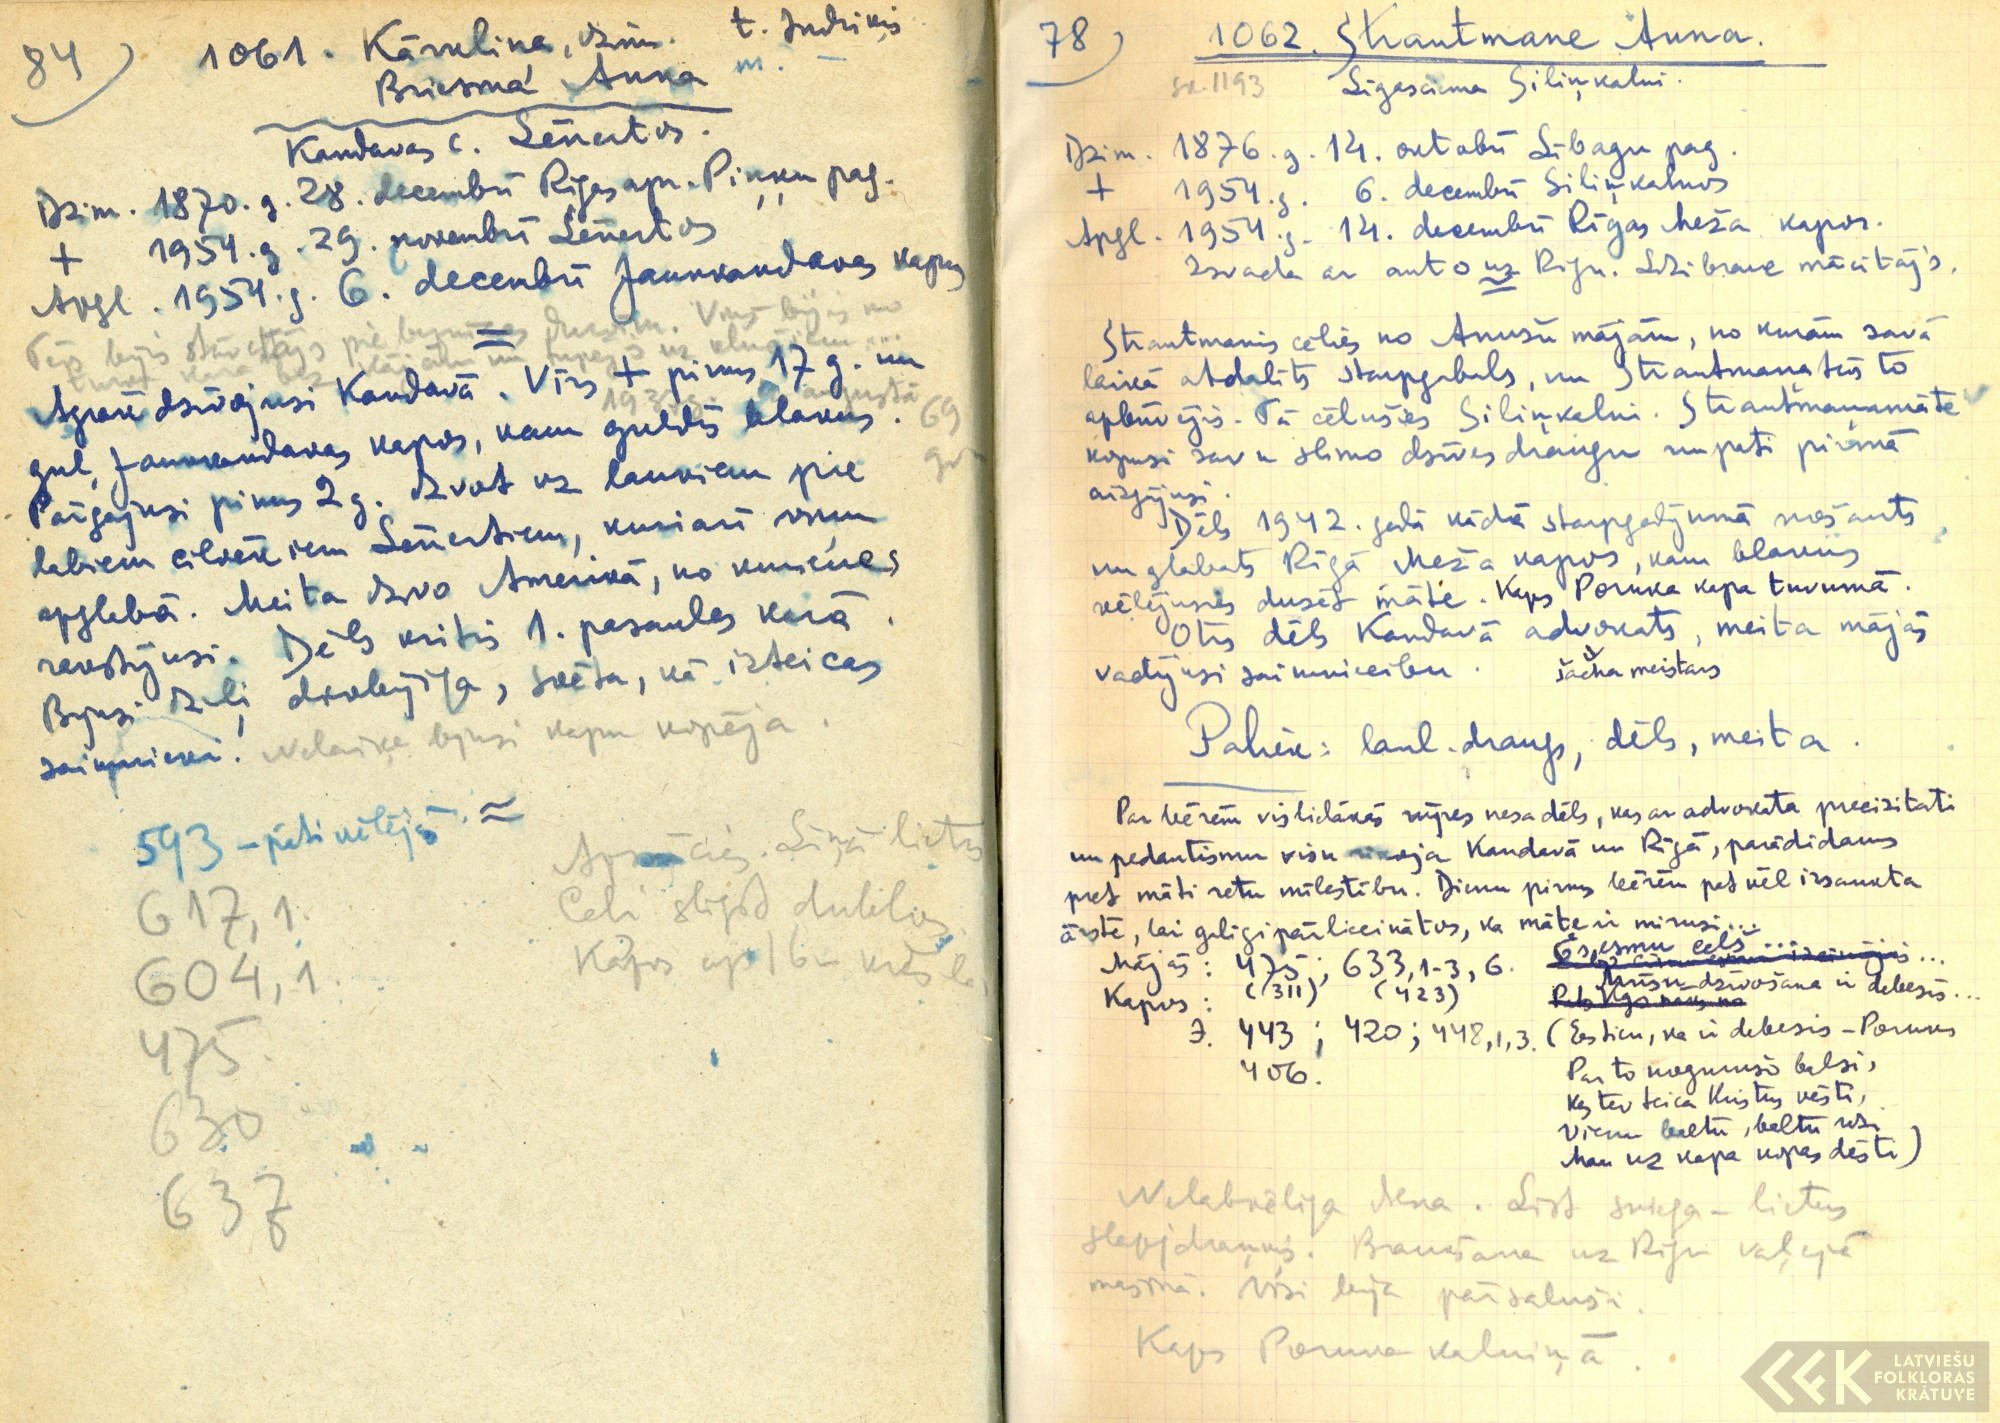 84)
1061. Kārkliņa, dzim. t. Indriķis
Briesmā Anna m. –
Kandavas c. Lēnertos.
Dzim. 1870. g. 28. decembrī Rīgas apr. Piņķu pag.
+ 1954. g. 29. novembrī Lēnertos
Apgl. 1954. g. 6. decembrī Jaunkandavas kapos
Tēvs bijis stārastājs pie baznīcas durvīm. Vīrs bijis no
turku kara bez kājām un rāpojis uz ...
Agrāk dzīvojusi Kandavā. Vīrs + pirms 17 g. un
193 g. augustā
69
gul Jaunkandavas kapos, kam guldīs blakus.
Pārgājusi pirms 2 g. dzīvot uz laukiem pie
labiem cilvēkiem Lēnertiem, kuri arī viņu
apglabā. Meita dzīvo Amerikā, no kurienes
rakstījusi. Dēls kritis 1. pasaules karā.
Bijusi dziļi dievbijīga, svēta, kā izteicas
saimnieki. Nelaiķe bijusi kapu kopēja.
593 – pati vēlējās
617,1.
604,1.
475.
630
637
Apmācies. Līņā lietus
Ceļi slīgst dubļos
Kapos
78)
1062. Strautmane Anna.
sk. 1193 Līgasciema Siliņkalni.
Dzim. 1876. g. 14. oktobrī Lībagu pag.
+ 1954. g. 6. decembrī Siliņkalnos
Apgl. 1954. g. 14. decembrī Rīgas Meža kapos.
Izvada ar auto uz Rīgu. Līdzi brauc mācītājs.
Strautmanis cēlies no Anusu mājām, no kurām savā
laikā atdalīts starpgabals, un Strautmanis to
apbūvējis. Tā cēlušies Siliņkalni. Strautmaņamāte
kopusi savu slimo dzīvesdraugu un pati pirmā
aizgājusi.
Dēls 1942. gadā kādā starpgadījumā nošauts
un glabāts Rīgā Meža kapos, kam blakus
vēlējusies dusēt māte. Kaps Poruka kapa tuvumā.
Otrs dēls Kandavā advokāts, meita mājās
vadījusi saimniecību. šacha meistars
Paliek: laul. draugs, dēls, meita.
Par bērēm vislielākās rūpes nesa dēls, kas ar advokāta precizitāti
un pedantismu visu rikoja Kandavā un Rīgā, parādīdams
pret māti retu mīlestību. Dienu pirms bērēm pat vēl izsaukta
ārste, lai galīgi pārliecinātos, ka māte ir mirusi...
Mājās: 475; 633,1-3,6. Es esmu ceļš ...
Kapos: (311) (423) Mūsu dzīvošana ir debesīs...
Ƶ. 443; 420; 448,1,3. (Es ticu, ka ir debesis – Poruks
406. Par to nogurušo balsi,
Kas tev teica Kristus vēsti,
Vienu baltu, baltu rozi
Man uz kapa kopas dēsti)
Nelabvēlīga diena. Līst sniega – lietus
slapjdraņķis. Braukšana uz Rīgu vaļējā
mašīnā. Visi bija pārsaluši.
Kaps Poruka kalniņā.
LATVIEŠU
FOLKLORAS
KRĀTUVE